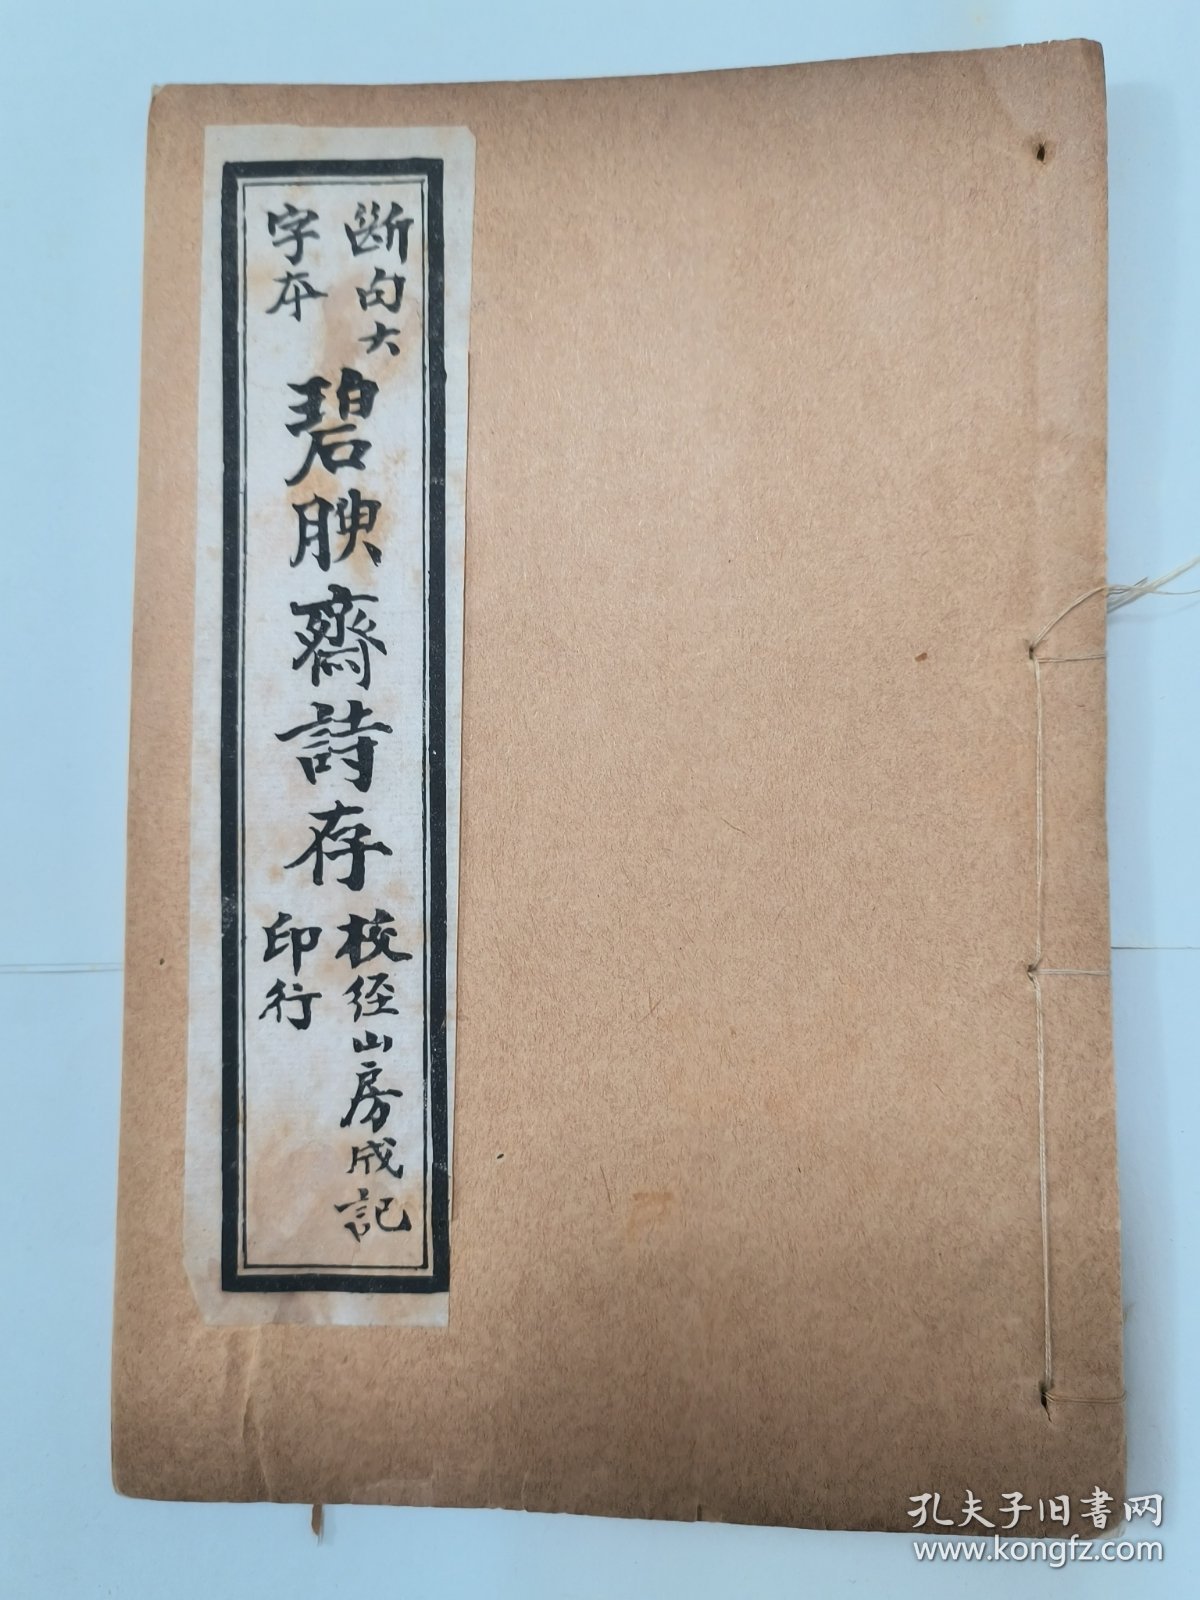 斷句大
字本
碧腴齋詩存
校經山房成記
印行
孔夫子旧书网
www.kongfz.com